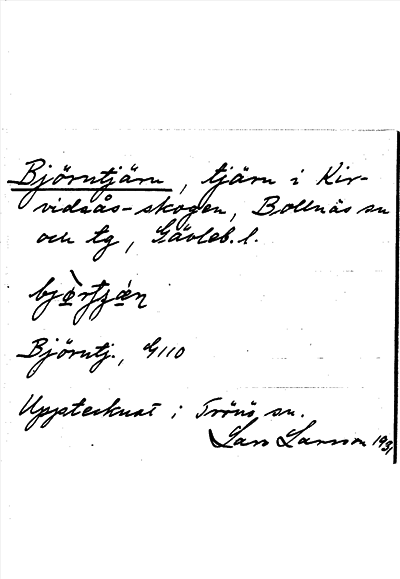 Björntjärn, tjärn i Kir-
vidsås-skogen, Bollnäs sn
och tg, Gävleb. l.
Björntj., G110
Upptecknat i Trönö sn.
Lars Larsson